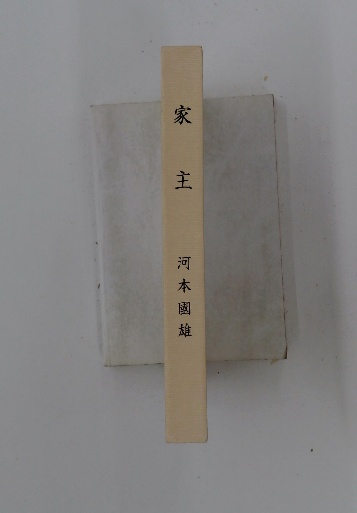 家主
河本國雄